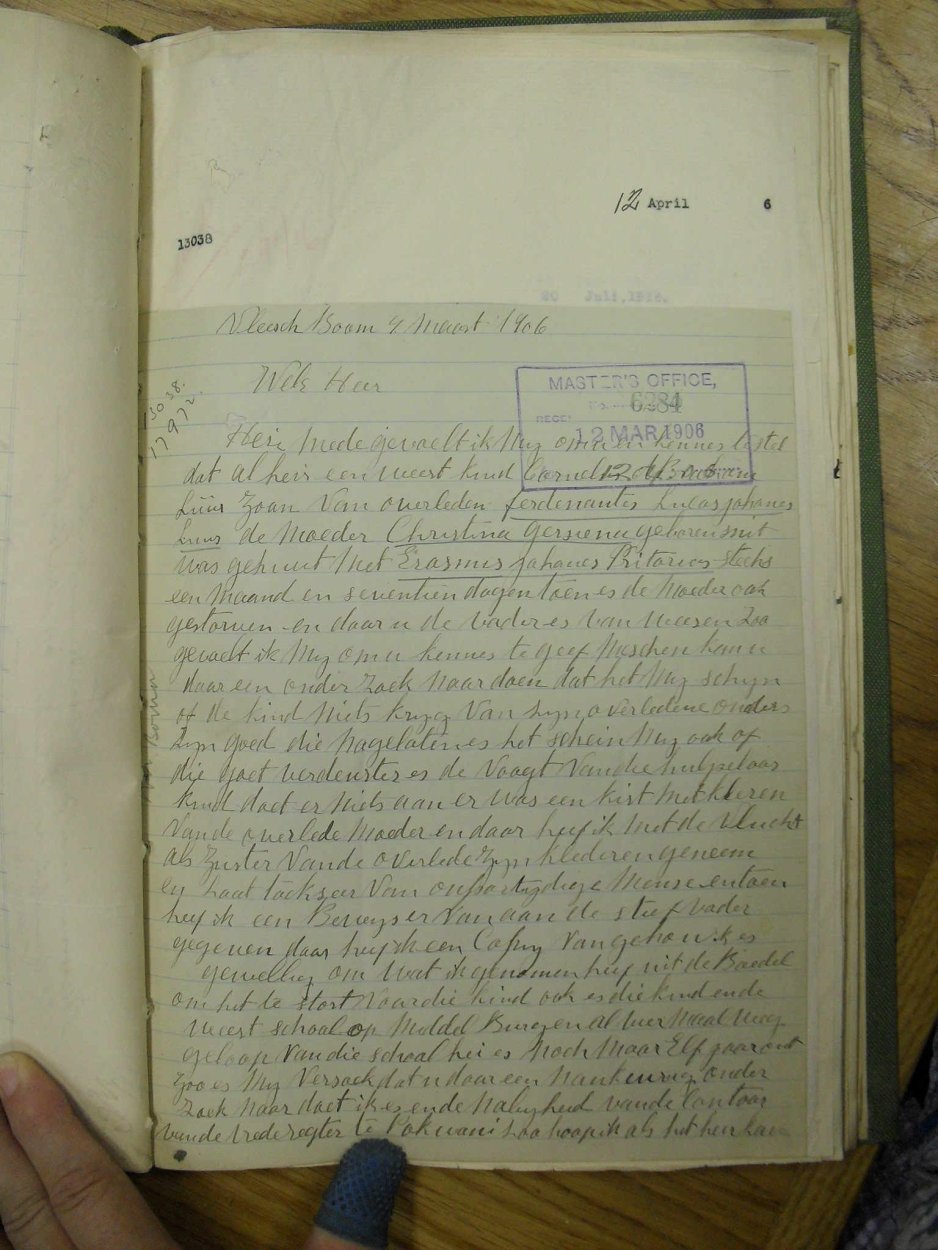 12 April 6
13038
20 Juli, 1906.
Vleesch Boom 4 Maart 1906
Wele Heer
13038.
MASTER'S OFFICE,
No. 6284
RECE
12 MAR 1906
Heir mede gevoelt ik My om u en kennes te stel
dat al heir een weest kind Cornelis
Luus Zoan Van overleden ferdenantis Lucas johanes
Luus de Moeder Christina Gersiena geboren smit
was gehuut Met Erasmus johanes Pritorios slechs
een Maand en seventien dagen toen es de Moeder oak
gestorven en daar u de vader es van weesen Zoo
gevoelt ik My om u kennes te geef Mischen kan u
daar een onder Zoek Naar doen dat het My schyn
of de kind Niets kryg Van syn overledene ouders
Zyn goed die Nagelaten es het schein My oak of
die goet verduuster es de Voogt Van die hulpeloos
kind doet er Niets aan er was een kist Met kleren
Van de overlede Moeder en daar heef ik Met de Vlucht
als Zuster Van de overlede Zyn klederen geneem
en Laat takseer Van onpartydige Mense en toen
heef ik een Bewys er Van aan de stief vader
gegeven daar heef ik een Copy Van gehou ik es
gewellig om wat ik genomen heef uit de Boedel
om het te stort Voor die kind ook es die kind ende
weest school op Middel Burg en al vier Maal weg
geloop Van die school hei es Noch Maar Elf jaar out
Zoo es My Versoek dat u daar een Naukeurig onder
Zoek Naar doet ik es ende Nabyheid van de Contoor
vande vrederegter te Pokwani Zoo hoop ik als het heir kan